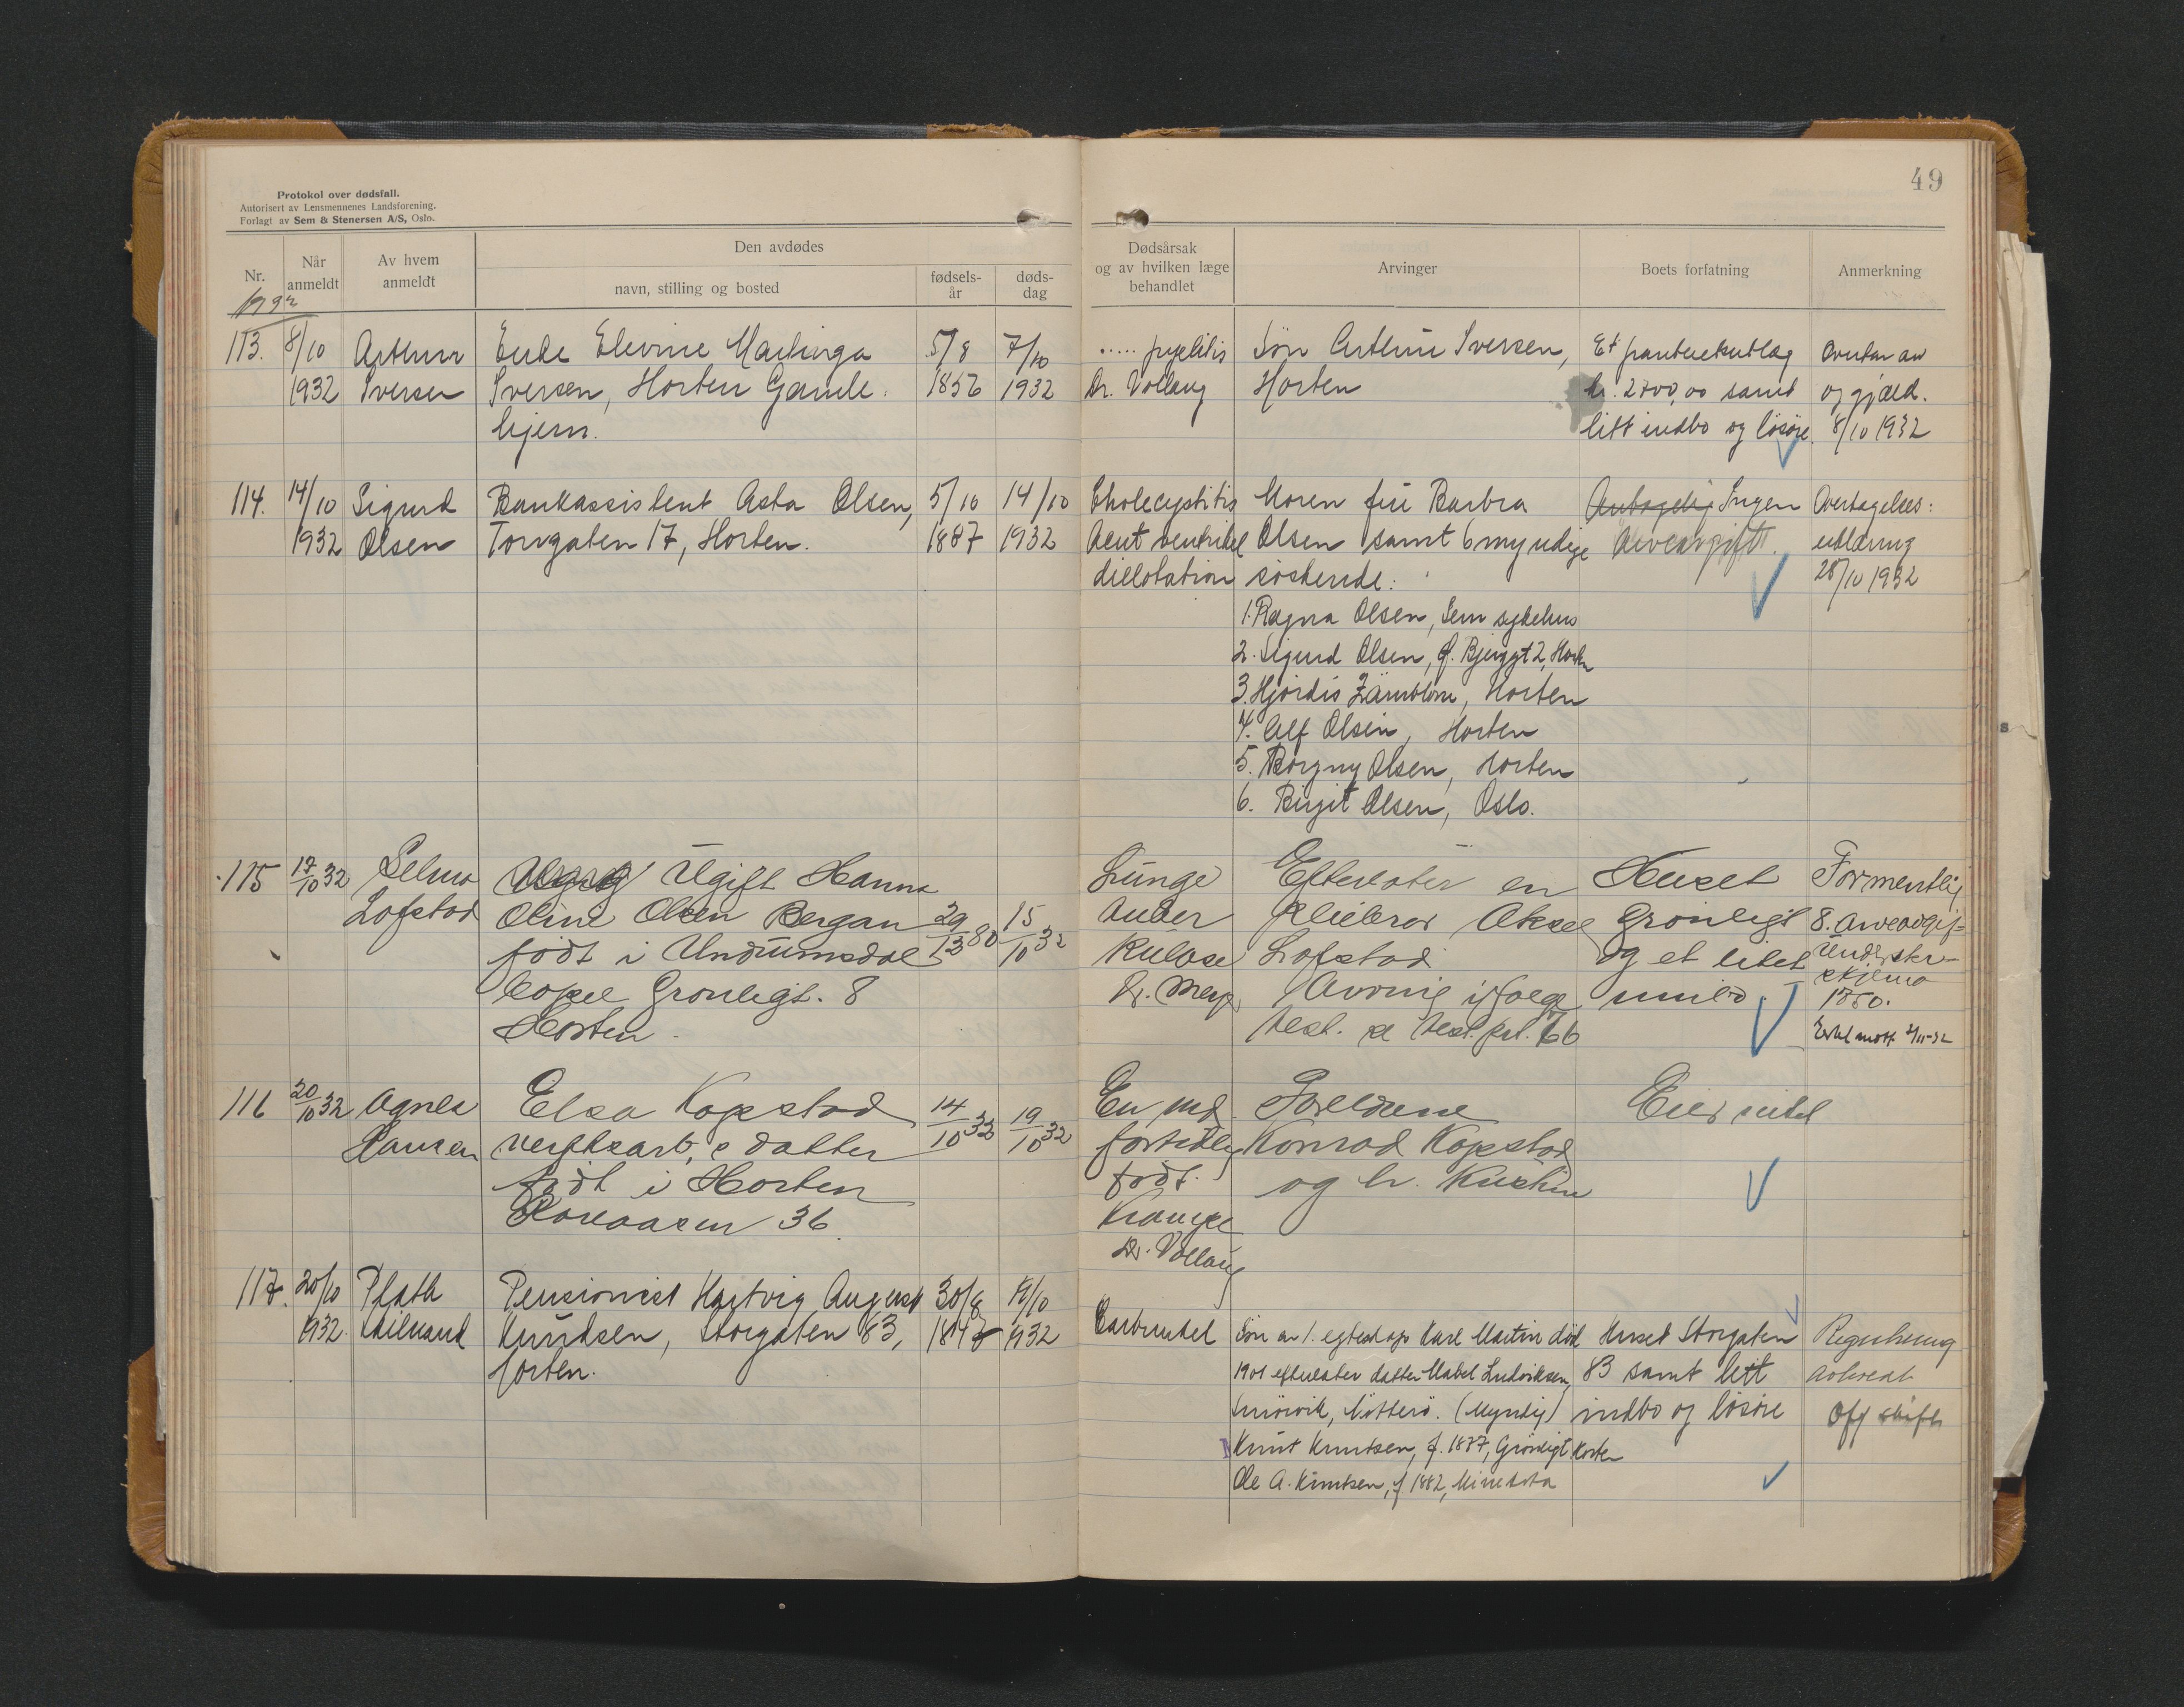 49
Protokol over dødsfall.
Autorisert av Lensmennenes Landsforening.
Forlagt av Sem & Stenersen A/S, Oslo.
Nr.
Når anmeldt
Av hvem anmeldt
Den avdødes
navn, stilling og bosted
fødsels-år
døds-dag
Dødsårsak og av hvilken læge behandlet
Arvinger
Boets forfatning
Anmerkning
1932
113. 8/10 1932
Arthur
Iversen
Enke Elevine
Iversen, Horten Gamle-
hjem.
5/8 1856
7/10 1932
..... pyelitis
Dr. Vollaug
Søn Arthur Iversen,
Horten
Et panteutlæg
kr. 2700,00 samt
litt indbo og løsøre
Overtar
og gjæld.
8/10 1932
114. 14/10 1932
Sigurd
Olsen
Bankassistent Asta Olsen,
Torvgaten 17, Horten.
5/10 1887
14/10 1932
Cholecystitis
Acut ventrikel
dillotation
Moren fru Barbra
Olsen samt 6 myndige
søskende:
1. Ragna Olsen, Sem sykehus
2. Sigurd Olsen, Bjerggt 2, Horten
3. Hjørdis, Horten
4. Alf Olsen, Horten
5. Borgny Olsen, Horten
6. Birgit Olsen, Oslo.
Antagelig Ingen
Arveavgift.
Overtagelses-
erklæring
28/10 1932
115 17/10 32
Selma
Lofstad
Ugift Hanna
Oline Olsen Bergan
født i Undrumsdal
bopæl Grønligt. 8
Horten
29/13 80
15/10 32
Lunge
tuber
kulose
Dr.
Efterlater en
pleiebror Aksel
Lofstad
Arving ifølge
test. se test. prt. 66
Huset
Grønligt
og et litet
innbo
Formentlig
8. Arveavgif-
Underskr-
skjema
1750.
116 20/10 32
Agnes
Hansen
Elsa Kopstad
verftsarb. s datter
født i Horten
36
14/10 32
19/10 32
En md.
fortidlig
født.
Krampe
Dr. Vollaug
Foreldrene
Konrad Kopstad
og h. Kristine
Eier intet
117. 20/10 1932
Pensionist Hartvig August
Knudsen, Storgaten 83,
Horten.
30/8 1847
19/10 1932
Carbunkel
Søn av 1. egteskap Karl Martin død
1901 efterlater datter Mabel Ludviksen,
Nøtterø. (Myndig)
Knut Knutsen, f. 1877, Grønligt Horten
Ole A. Knutsen, f 1882, Minesota
Huset Storgaten
83 samt litt
indbo og løsøre
Off skifte